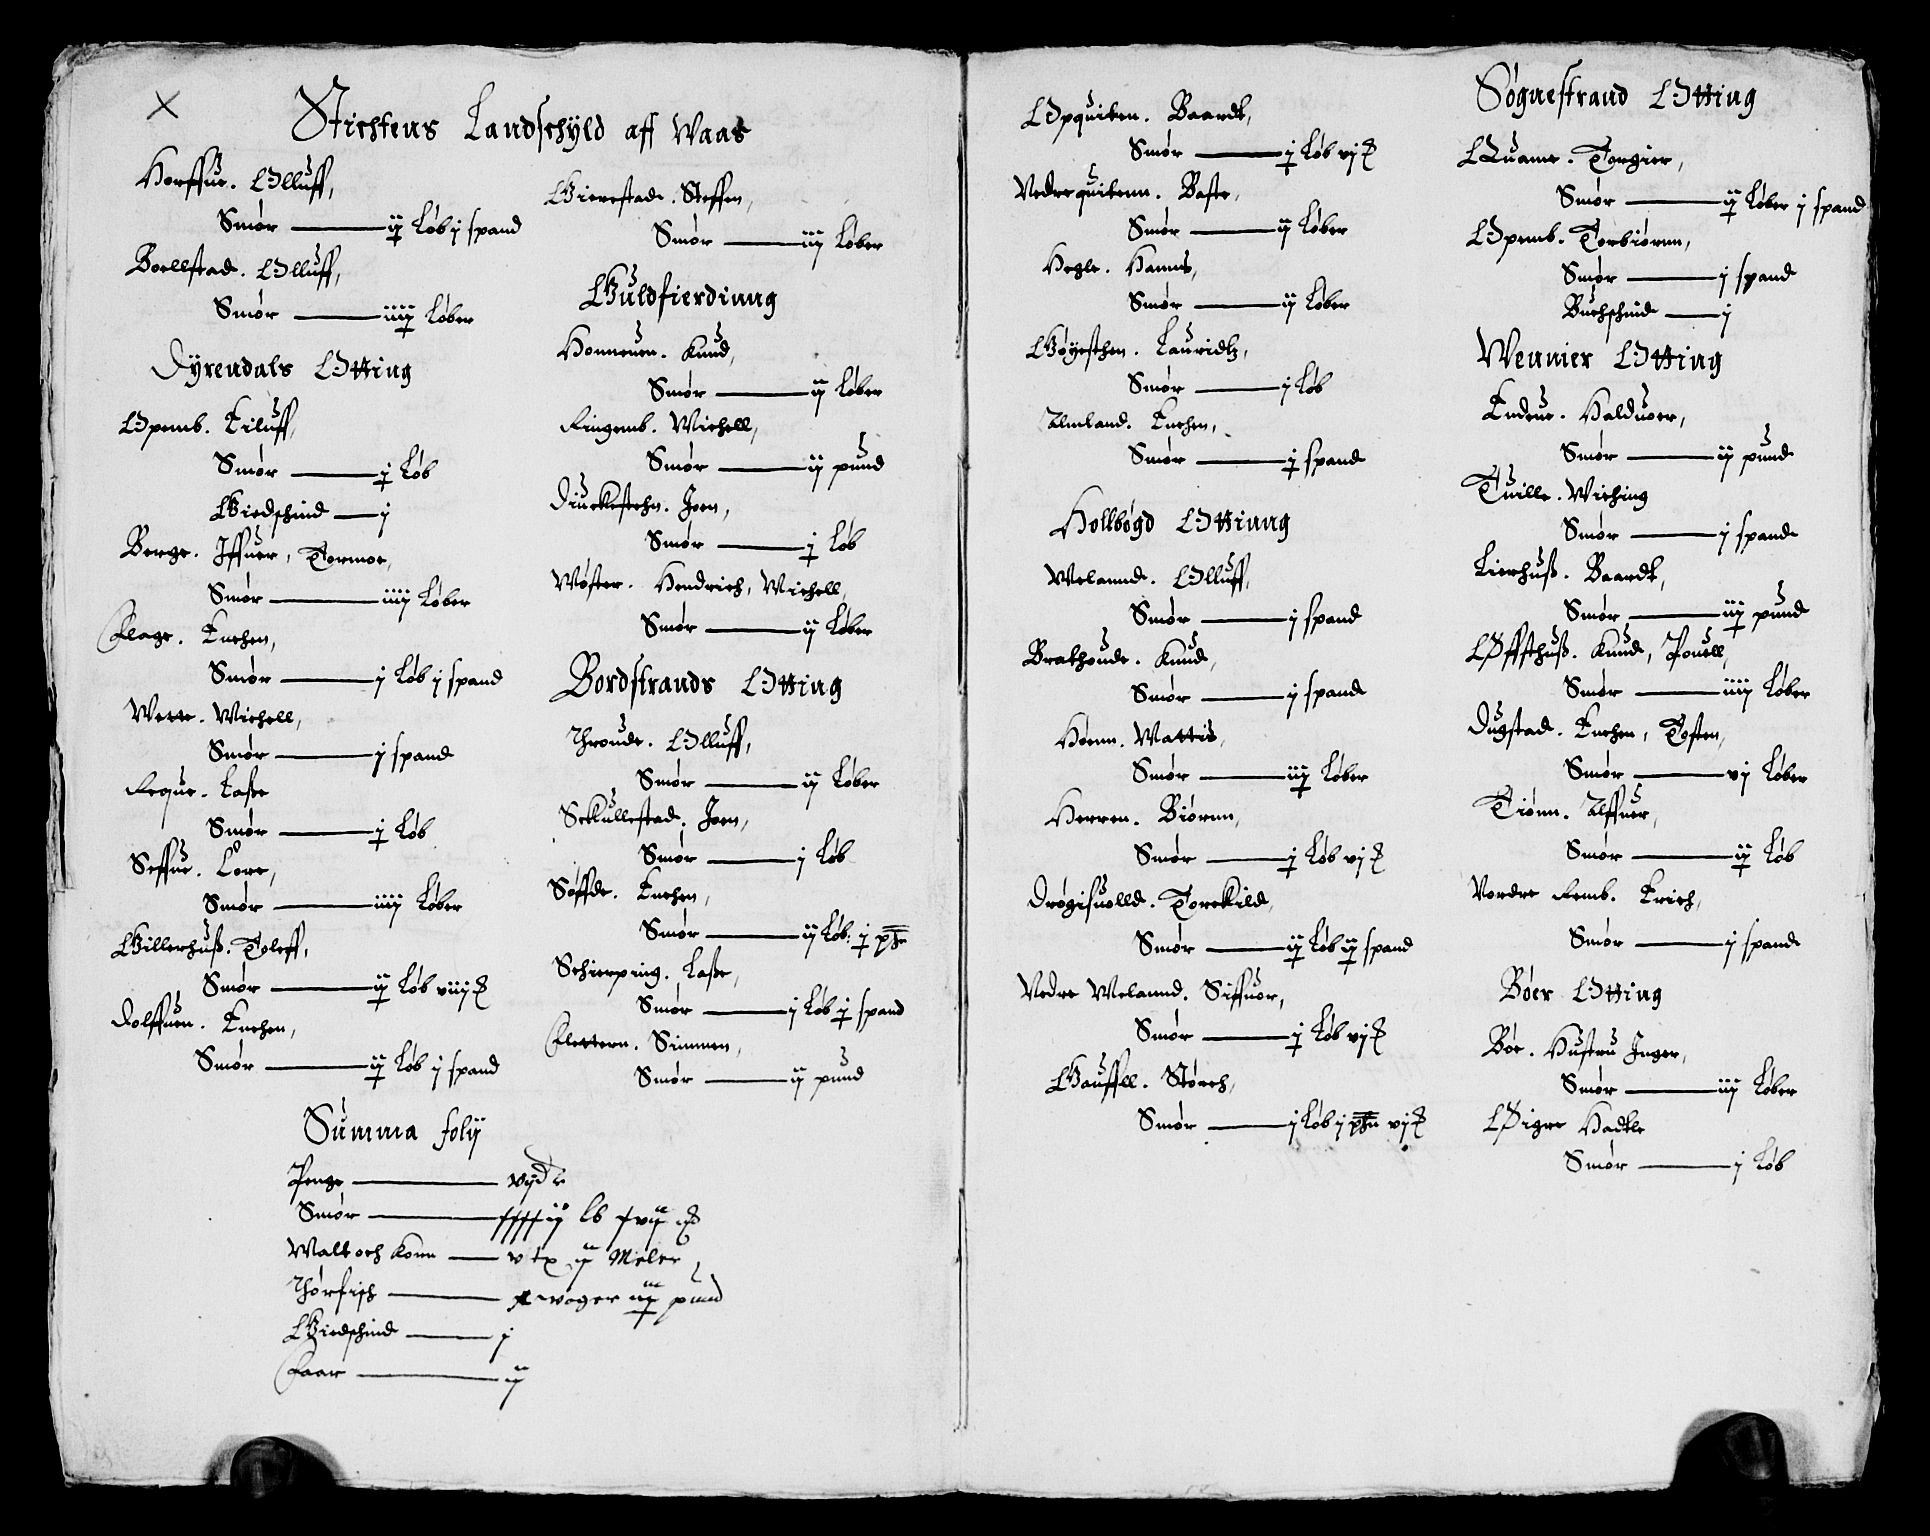 Stichtens Landschyld aff Waas
Horffue. Olluff,
Smør — ij Løb j spand
Boellstad. Olluff,
Smør — iiij Løber
Dyrendals Otting
Opemb. Eiluff,
Smør — j Løb
Giedschind — j
Berge. Iffuer, Tormoe,
Smør — iiij Løber
Flage. Enchen,
Smør — j Løb j spand
Wette. Michell,
Smør — j spand
Reque. Lasse
Smør — j Løb
Seffue. Lore,
Smør — iiij Løber
Gillerhuß. Toleff,
Smør — ij Løb viij
Dolffuen. Enchen,
Smør — ij Løb j spand
Giereftade. Steffen,
Smør — iij Løber
Guldfierdinng
Honneuen. Knud,
Smør — ij Løber
Ringemb. Michell,
Smør — ij pund
Diuckestehn. Joen,
Smør — j Løb
Møster. Hendrich, Michell,
Smør — ij Løber
Bordstrands Otting
Throude. Olluff,
Smør — ij Løber
Sckullestad. Joen,
Smør — j Løb
Søffde. Enchen,
Smør — ij Løb: j
Schierping. Lasse,
Smør — j Løb j spand
Flettern. Simmen,
Smør — ij pund
Summa folij
Penge — vij
Smør — lb
Malt och Konn — Meler
Thørfisch — woger iij pund
Giedschind — j
Faar — ij
Opquiten. Baardt,
Smør — j Løb vj
Nedrequitenn. Baste,
Smør — ij Løber
Hegle. Hanns,
Smør — ij Løber
Gøyesthen. Lauridtz,
Smør — j Løb
Almland. Enchen,
Smør — j spand
Hollbøgd Ottinng
Melannd. Olluff,
Smør — j spand
Brathoude. Knud,
Smør — j spand
Hønn. Mattis,
Smør — iij Løber
Herren. Biørnn,
Smør — j Løb vj
Drøgisuolld. Torckild,
Smør — ij Løb ij spand
Nedre Melannd. Siffuor,
Smør — j Løb vj
Gauffll. Størch,
Smør — j Løb j vj
Søgnestrand Otting
Quame. Torgier,
Smør — ij Løber j spand
Opemb. Torbiørnn,
Smør — j spand
Buchschind — j
Wennier Otting
Endeue. Halduoer,
Smør — ij pund
Tuille. Wiching
Smør — j spand
Lierhuß. Baardt,
Smør — iij pund
Øffsthuß. Knud, Pouell,
Smør — iiij Løber
Dugstad. Enchen, Tosten,
Smør — vj Løber
Tiønn. Alffuer,
Smør — ij Løb
Nordre Remb. Erich,
Smør — j spand
Bøer Otting
Bøe. Hustru Inger,
Smør — iij Løber
Øigre Hadtle
Smør — j Løb